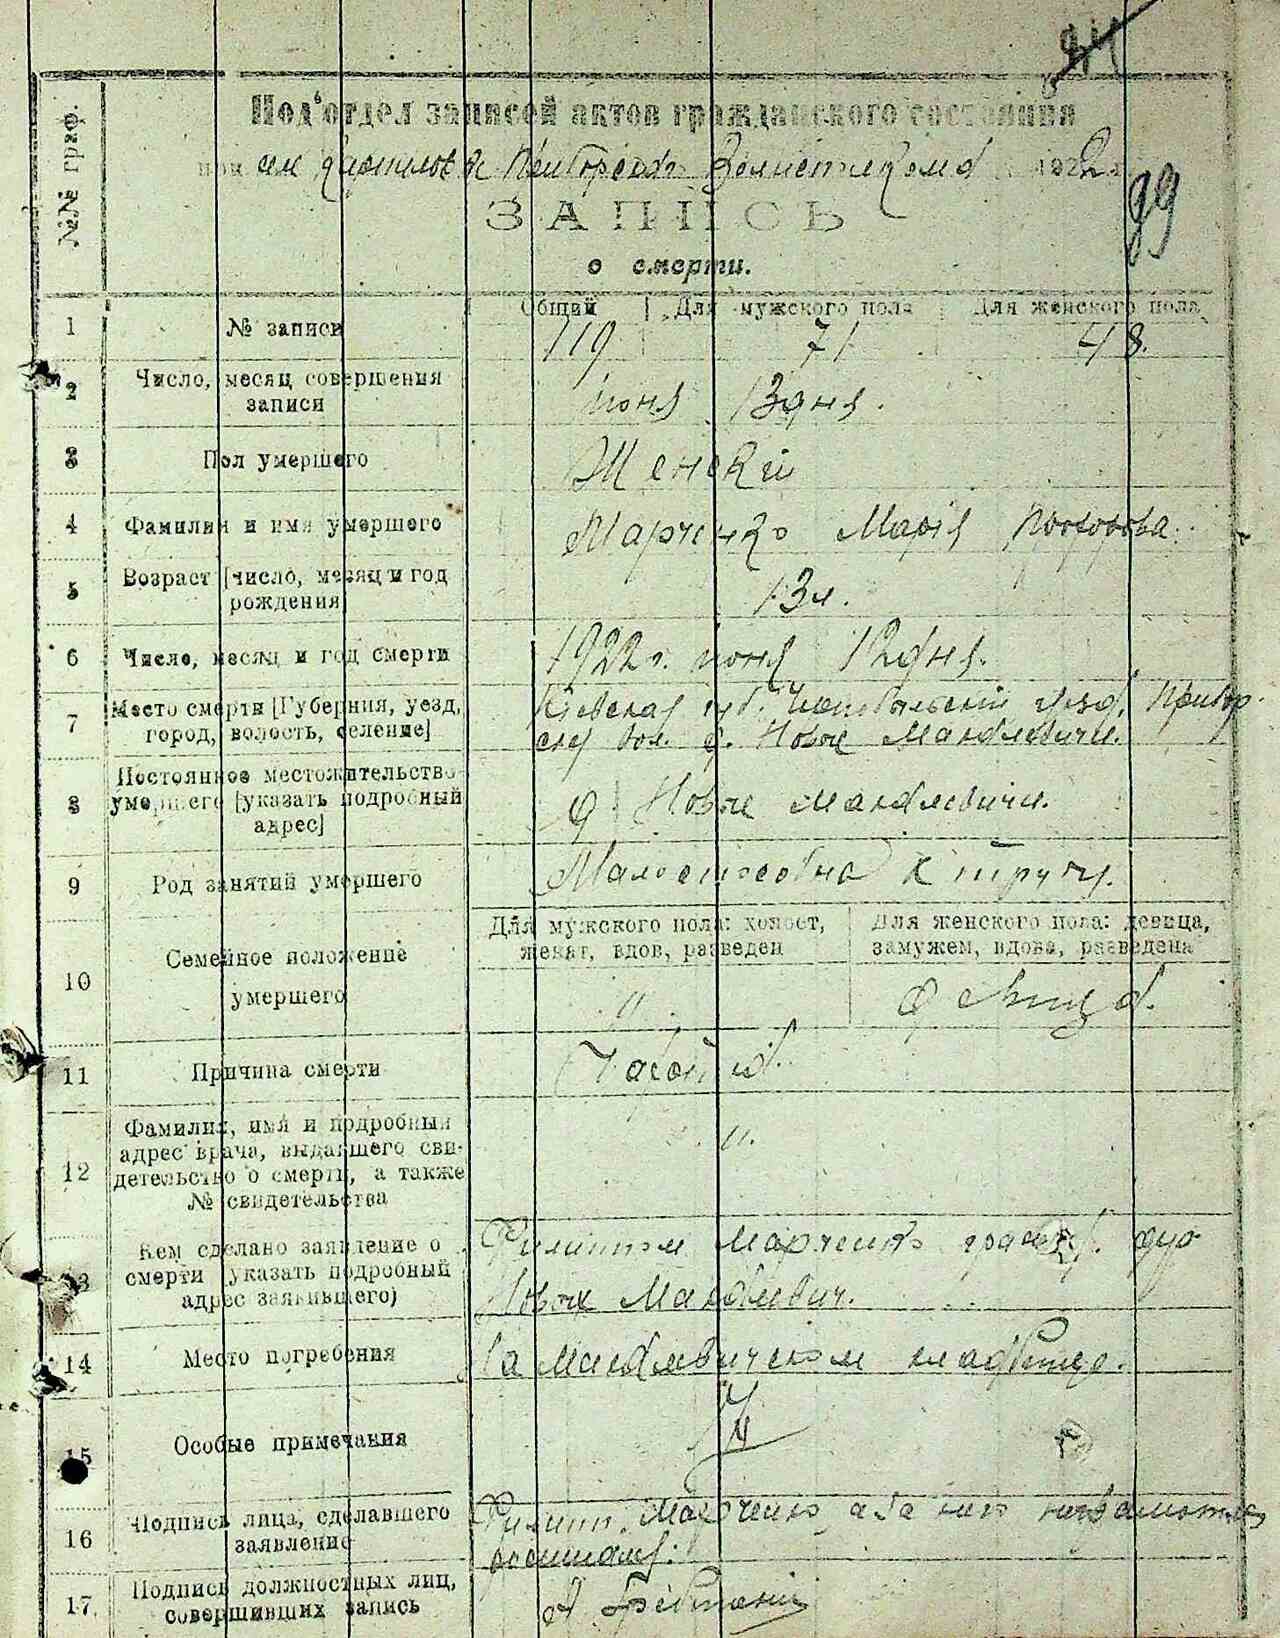 Под'отдел записей актов гражданского состояния
при Волисполкома 1922 г.
99
ЗАПИСЬ
о смерти.
№№ граф.
Общий Для мужского пола Для женского пола
1 № записи 119 71 48.
2 Число, месяц совершения
записи июня 13 дня.
3 Пол умершего Женский
4 Фамилия и имя умершего Марченко Марія Прохорова
5 Возраст [число, месяц и год
рождения] 13 л.
6 Число, месяц и год смерти 1922 г. июня 12 дня.
7 Место смерти [Губерния, уезд, Кіевская губ. Чернобыльскій уезд, Прибор-
город, волость, селение] ская вол. д. Новые Макалевичи.
8 Постоянное местожительство
умершего [указать подробный д. Новые Макалевичи.
адрес]
9 Род занятий умершего Малоспособна к труду.
Для мужского пола: холост, Для женского пола: девица,
женат, вдов, разведен замужем, вдова, разведена
10 Семейное положение
умершего " девица.
11 Причина смерти
12 Фамилия, имя и подробный
адрес врача, выдавшего сви- "
детельство о смерти, а также
№ свидетельства
13 Кем сделано заявление о Филиппом Марченко
смерти (указать подробный Новых Макалевич.
адрес заявившего)
14 Место погребения На Макалевическом кладбище.
15 Особые примечания
16 Подпись лица, сделавшего Филипп Марченко, а за него неграмотного
заявление росписался:
17 Подпись должностных лиц,
совершивших запись